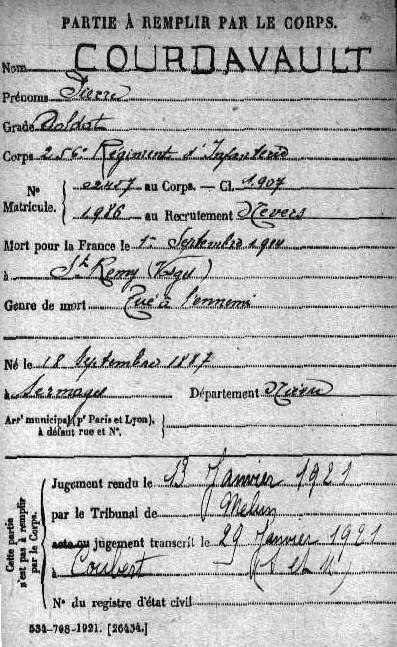 PARTIE À REMPLIR PAR LE CORPS.
Nom COURDAVAULT
Prénoms Pierre
Grade Soldat
Corps 256e Régiment d'Infanterie
N° Matricule. { 02457 au Corps. — Cl. 1907
1986 au Recrutement Nevers
Mort pour la France le 1er Septembre 1914
à St Remy (Vosges)
Genre de mort Tué à l'ennemi
Né le 18 Septembre 1887
à Sermages Département Nièvre
Arrt municipal (pr Paris et Lyon),
à défaut rue et N°.
Cette partie n'est pas à remplir par le Corps.
Jugement rendu le 13 Janvier 1921
par le Tribunal de Melun
acte ou jugement transcrit le 29 Janvier 1921
à Coubert (S et M)
N° du registre d'état civil
534-708-1921. [26434.]